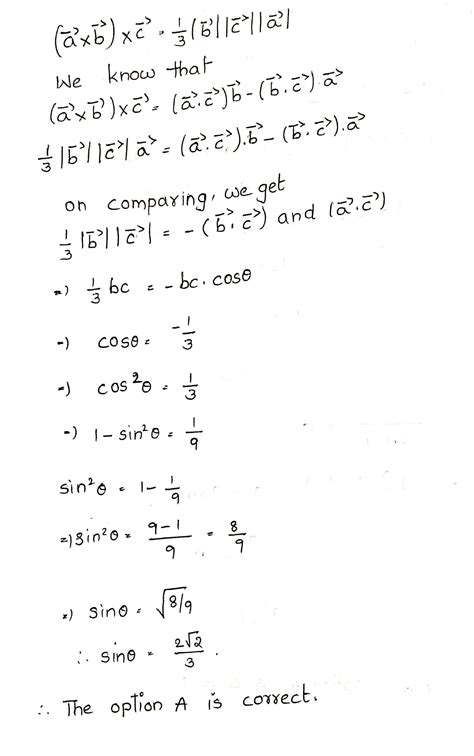 (a⃗×b⃗)×c⃗ = 1/3 |b⃗||c⃗||a⃗|
We know that
(a⃗×b⃗)×c⃗ = (a⃗.c⃗)b⃗ - (b⃗.c⃗).a⃗
1/3 |b⃗||c⃗| a⃗ = (a⃗.c⃗).b⃗ - (b⃗.c⃗).a⃗
on comparing, we get
1/3 |b⃗||c⃗| = - (b⃗.c⃗) and (a⃗.c⃗)
=) 1/3 bc = - bc. cosθ
=) cosθ = -1/3
=) cos²θ = 1/3
=) 1 - sin²θ = 1/9
sin²θ = 1 - 1/9
=) sin²θ = 9-1/9 = 8/9
=) sinθ = √8/9
∴ sinθ = 2√2/3 .
∴ The option A is correct.